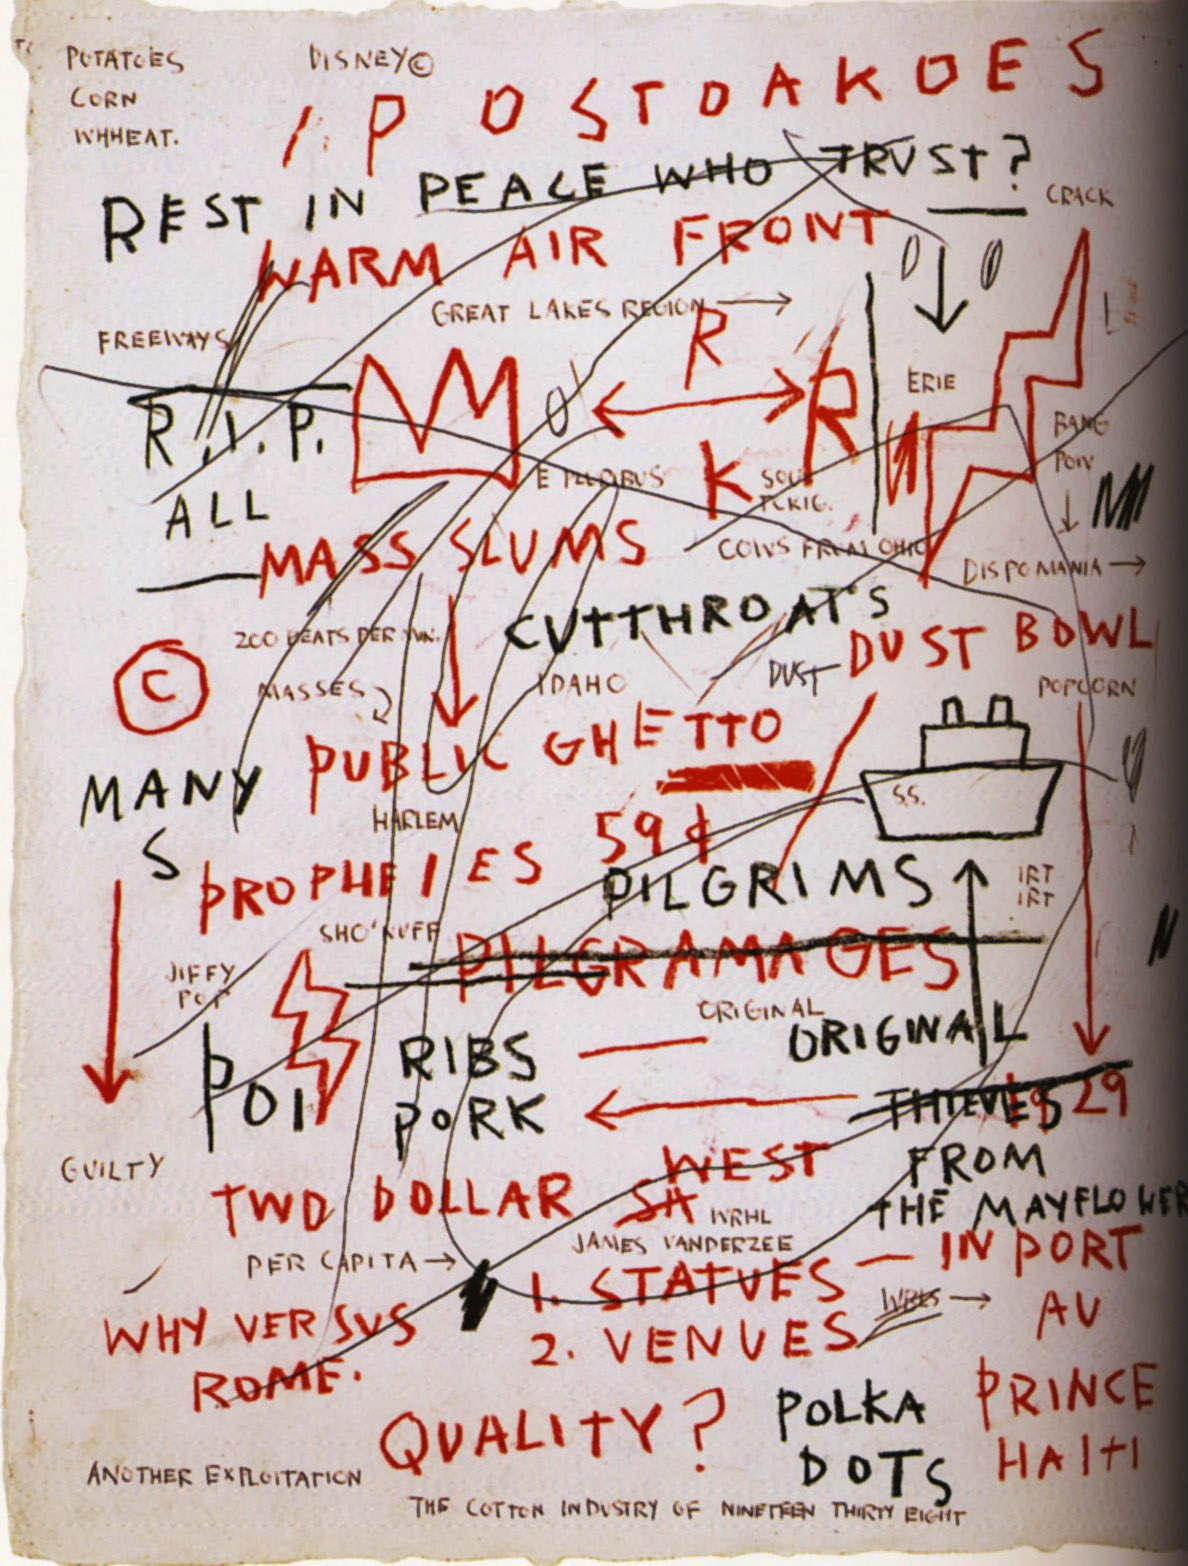 POTATOES
DISNEY©
CORN
WHHEAT.
1. P O S T O A K O E S
REST IN PEACE WHO TRUST?
CRACK
WARM AIR FRONT
GREAT LAKES REGION
FREEWAYS
R
ERIE
R.I.P.
R
BANG
POW
E PLURBUS
K
ALL
MASS SLUMS
COWS FROM OHIO
DISPOMANIA
CUTTHROATS
200 BEATS PER MIN.
DUST BOWL
DUST
C
MASSES
IDAHO
POPCORN
PUBLIC GHETTO
MANY
S.S.
S
HARLEM
59¢
PROPHEIES
PILGRIMS
IRT
IRT
SHO'NUFF
PILGRAMAGES
JIFFY
POP
ORIGINAL
POI
RIBS
ORIGINAL
PORK
THIEVES
1929
GUILTY
WEST
FROM
TWO DOLLAR SA
THE MAYFLOWER
WRHL
JAMES VANDERZEE
IN PORT
PER CAPITA
1. STATUES
AU
WHY VERSUS
2. VENUES
ROME.
PRINCE
QUALITY?
POLKA
DOTS
HAITI
ANOTHER EXPLOITATION
THE COTTON INDUSTRY OF NINETEEN THIRTY EIGHT